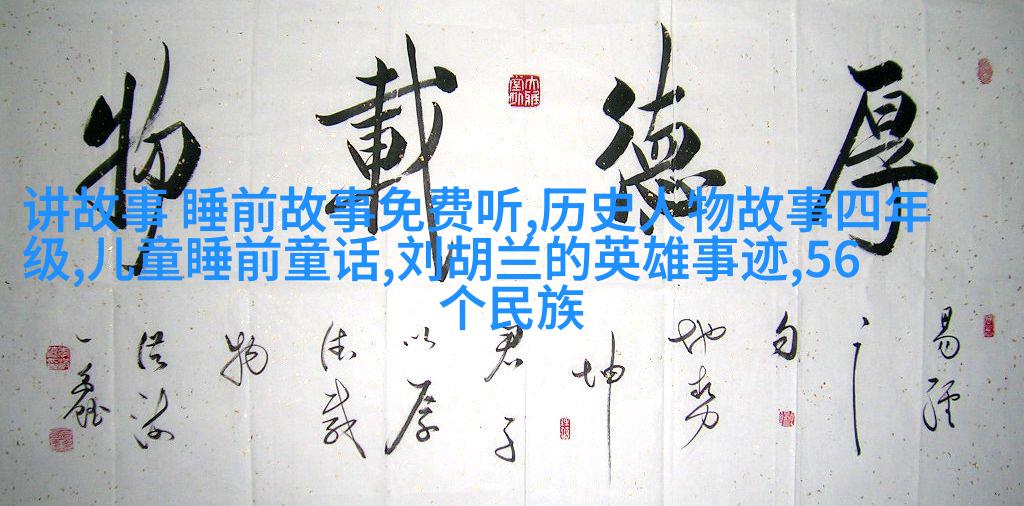 厚德載物
讲故事 睡前故事免费听,历史人物故事四年
级,儿童睡前童话,刘胡兰的英雄事迹,56
个民族
易經
之
句
地势
坤
君子
以厚
德载
物